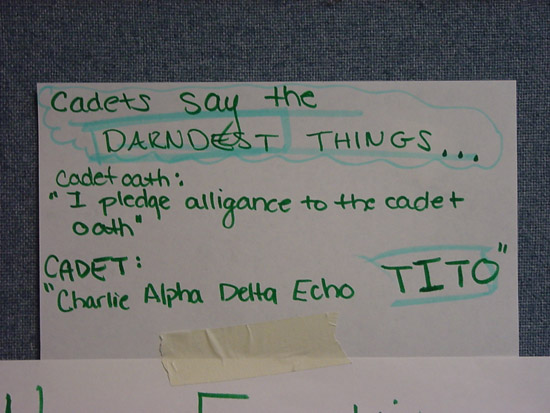 Cadets say the
DARNDEST THINGS...
Cadet oath:
"I pledge alligance to the cadet
oath"
CADET:
"Charlie Alpha Delta Echo TITO"